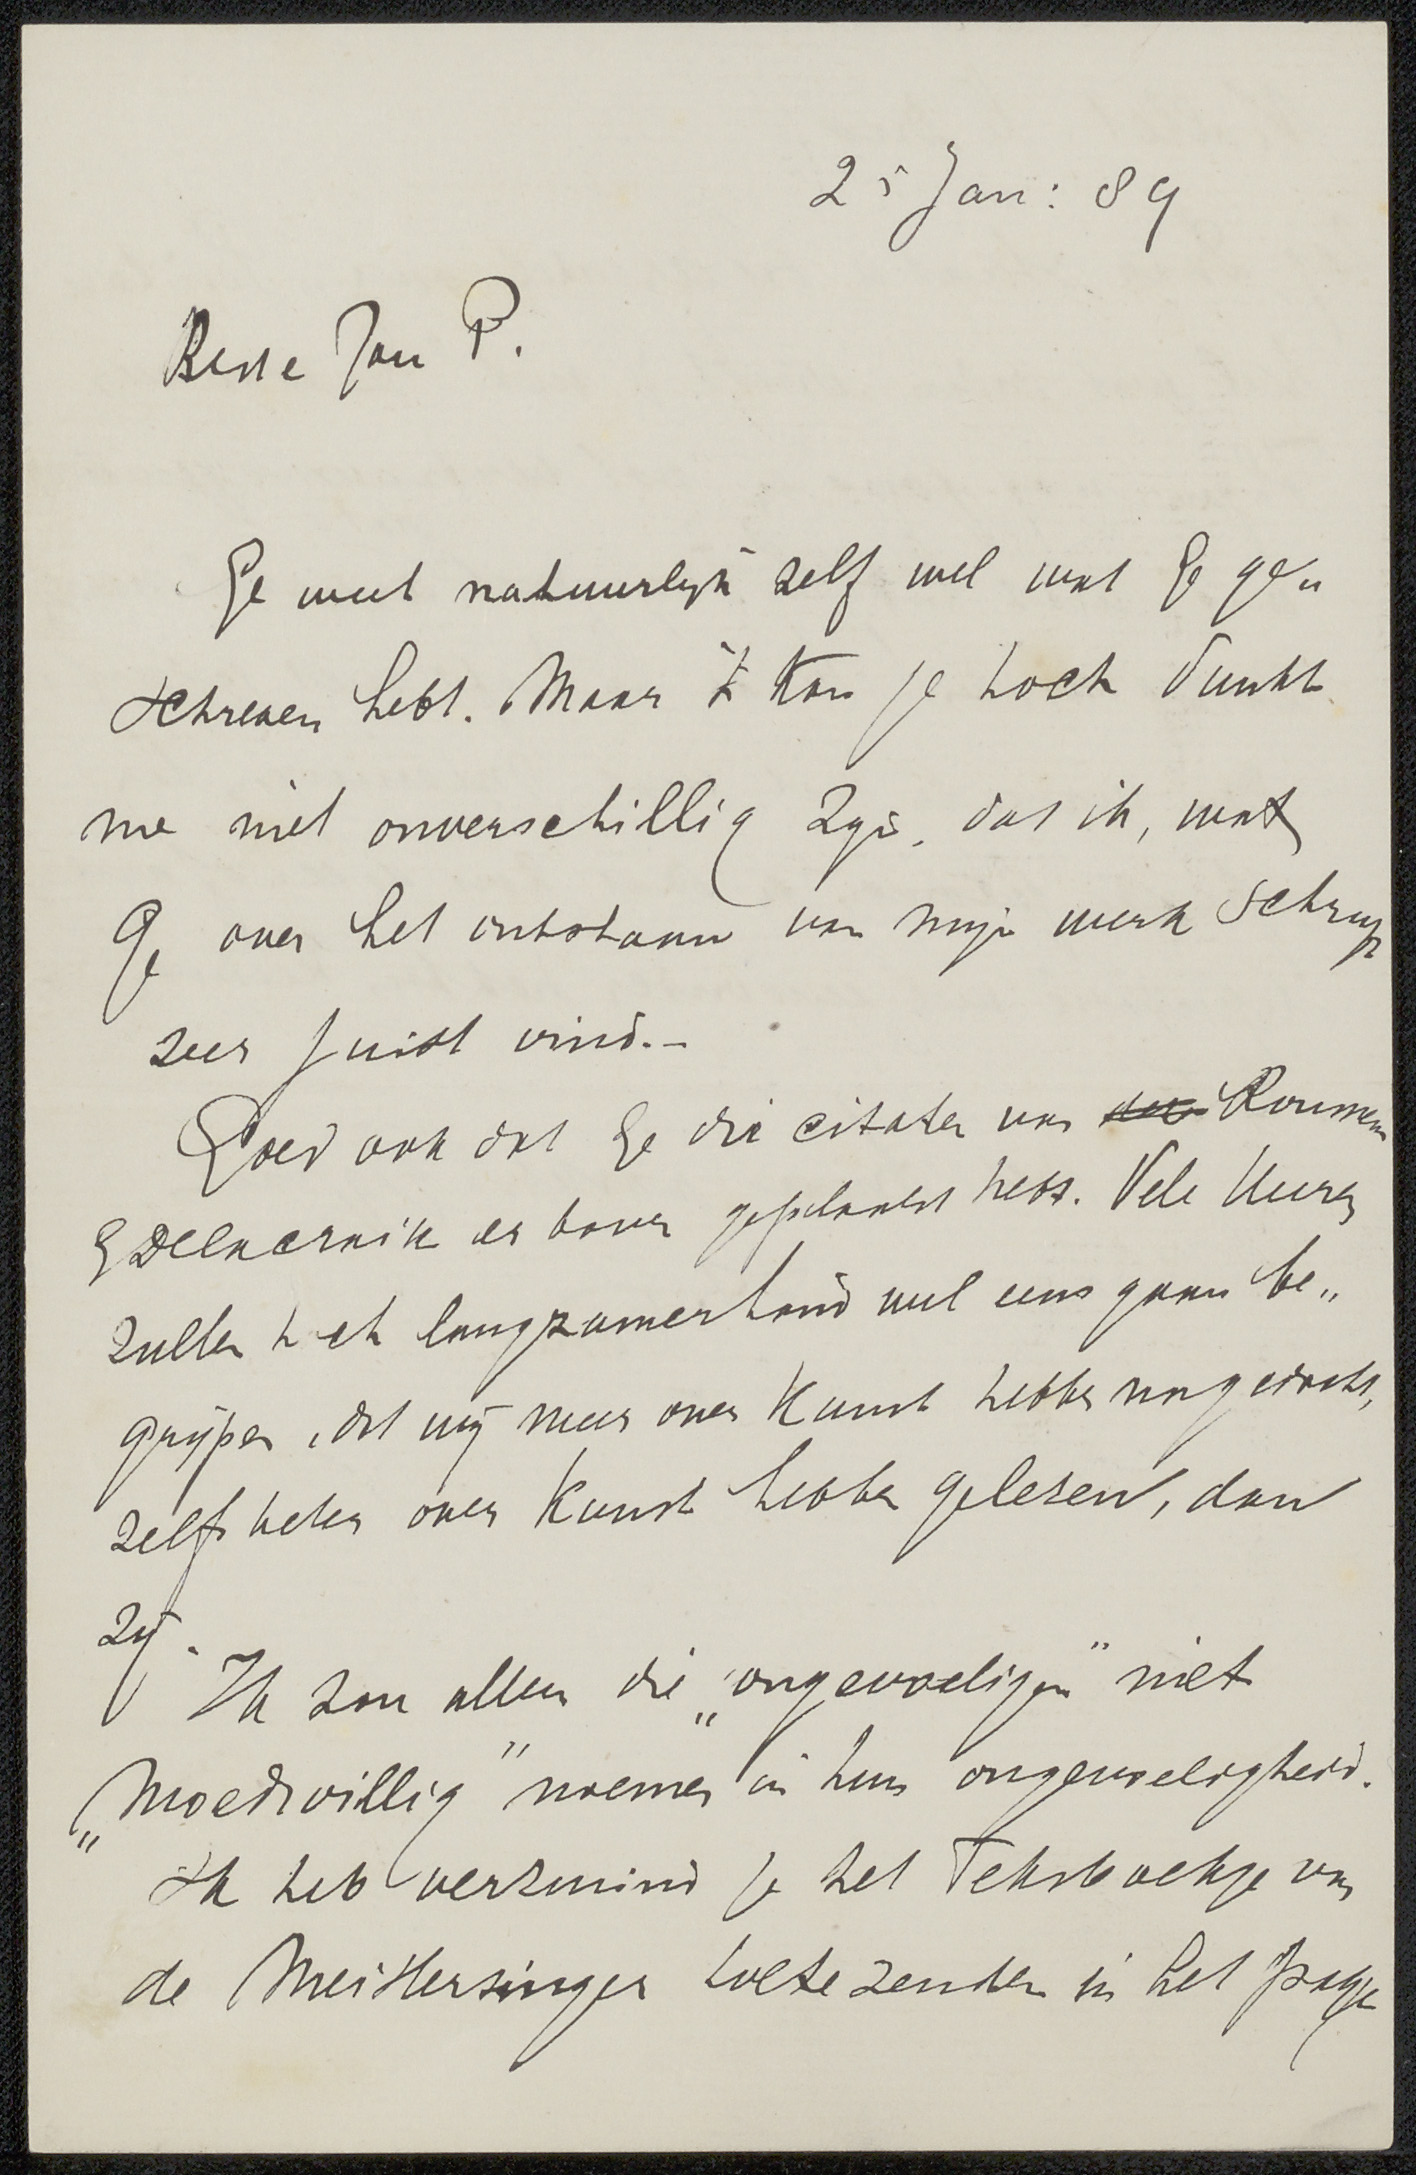 25 Jan: 89
Beste Jan P.
Ge weet natuurlyk zelf wel wat Ge ge„
schreven hebt. Maar 't kan je toch dunkt
me niet onverschillig zyn, dat ik, wat
Ge over het ontstaan van myn werk schryft
zeer juist vind.-
Goed ook dat Ge die citaten van
& Delacroix er boven geplaatst hebt. Vele
zullen toch langzamerhand wel eens gaan be„
grijpen, dat wij meer over Kunst hebben nagedacht,
zelfs beter over Kunst hebben gelezen, dan
zij.
Ik zou alleen die „ongevoeligen" niet
„Moedwillig" noemen in hun ongevoeligheid.
Ik heb verzuimd je het Tekstboekje van
de Meistersinger toe te zenden in het pakje